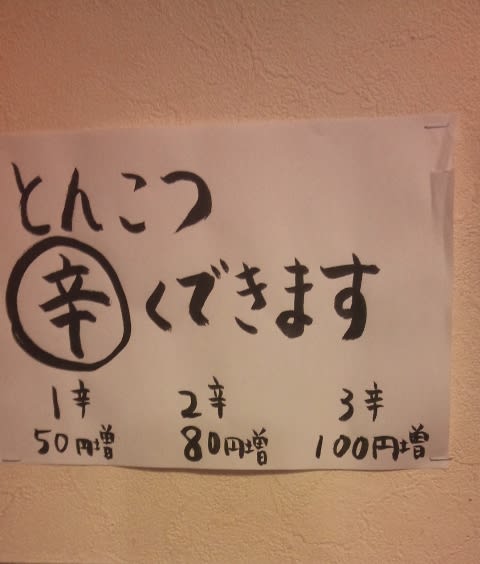 とんこつ
辛くできます
1辛 2辛 3辛
50円増 80円増 100円増